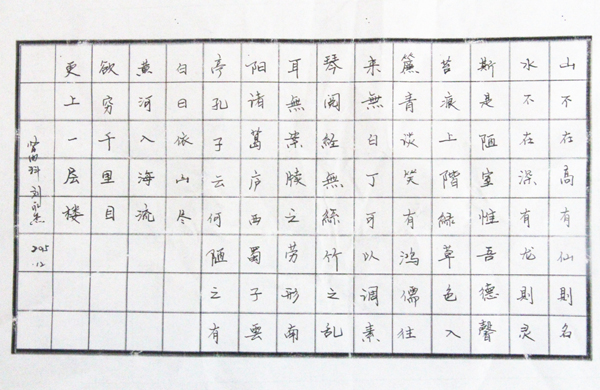 山不在高有仙則名
水不在深有龙則灵
斯是陋室惟吾德馨
苔痕上階緑草色入
簾青谈笑有鸿儒往
来無白丁可以调素
琴阅経無絲竹之乱
耳無案牍之劳形南
阳诸葛庐西蜀子雲
亭孔子云何陋之有
白日依山尽
黄河入海流
欲穷千里目
更上一层楼
内科 刘